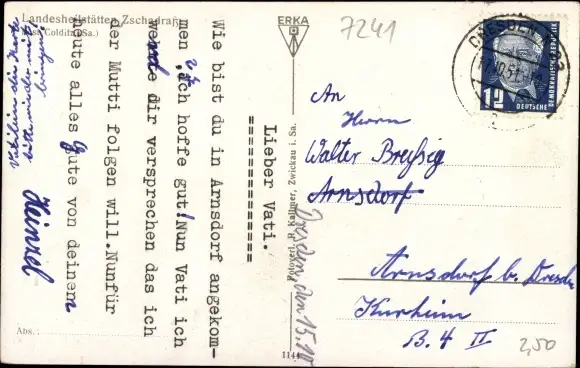 Landesheilstätten Zschadraß
(Post Colditz/Sa.)
ERKA
7241
DRESDEN
DEUTSCHE
DEMOKRATISCHE REPUBLIK
12
Dresden, den 15.10
Lieber Vati.
============
Wie bist du in Arnsdorf angekom-
men ,ich hoffe gut!Nun Vati ich
werde dir versprechen das ich
der Mutti folgen will.Nunfür
heute alles Gute von deinem
Heinzel
bitte wieder mit
bringen
Abs.:
Fotoverl. R. Kallmer, Zwickau i. Sa.
1144
An
Herrn
Walter Breyßig
Arnsdorf
Arnsdorf b. Dresden
Kurheim
B. 4 II
2,50